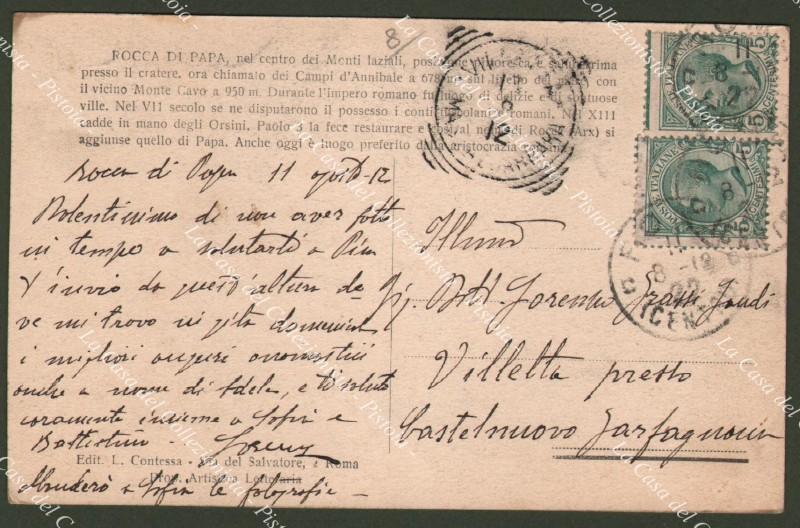 ROCCA DI PAPA, nel centro dei Monti laziali, posizione pittoresca e saluberrima
presso il cratere, ora chiamato dei Campi d'Annibale a 678 m. sul livello del mare, con
il vicino Monte Cavo a 950 m. Durante l'impero romano fu luogo di delizie e di sontuose
ville. Nel VII secolo se ne disputarono il possesso i conti tuscolani e romani. Nel XIII
cadde in mano degli Orsini. Paolo la fece restaurare e così al nome di Rocca (Arx) si
aggiunse quello di Papa. Anche oggi è luogo preferito dalla aristocrazia
8
Rocca di Papa 11 agosto 12
Dolentissimo di non aver fatto
in tempo a salutarti a Pisa
T'invio da quest'altura do-
ve mi trovo in gita domenica
i migliori auguri onomastici
anche a nome di Adele, e ti saluto
caramente insieme a Sofia e
Battistino -
Manderò a Sofia le fotografie -
Edit. L. Contessa - Via del Salvatore, Roma
Prop. Artistica Letteraria
Illmo
Sig. Dott. Lorenzo Grassi Landi
Villetta presto
Castelnuovo Garfagnana
POSTE ITALIANE
CENTESIMI 5
POSTE ITALIANE
CENTESIMI 5
11
8
12
La Casa del Collezionista - Pistoia